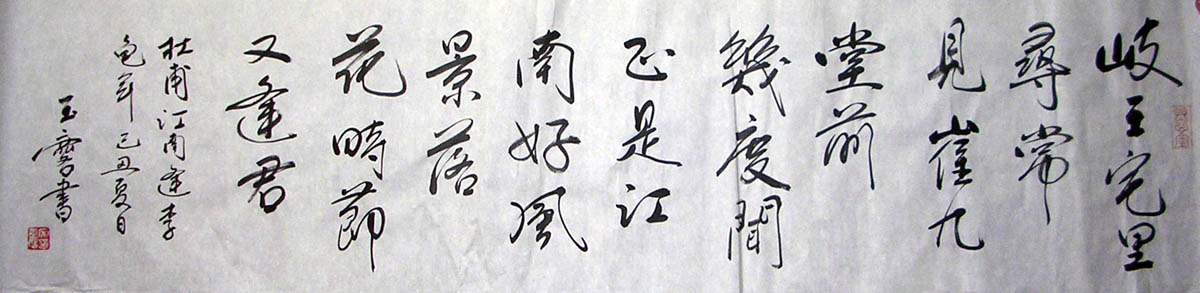 岐王宅里
尋常
見崔九
堂前
幾度聞
正是江
南好風
景落
花時節
又逢君
杜甫江南逢李
龟年己丑夏日
玉
書